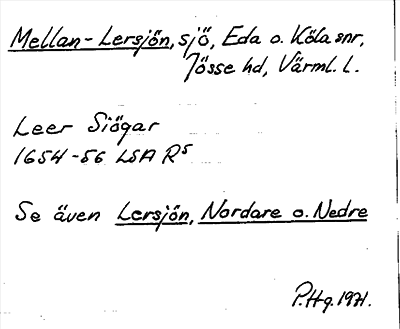 Mellan-Lersjön, sjö, Eda o. Köla snr,
Jösse hd, Värml. l.
Leer Siögar
1654-56 LSA R5
Se även Lersjön, Nordare o. Nedre
P.Hg. 1971.